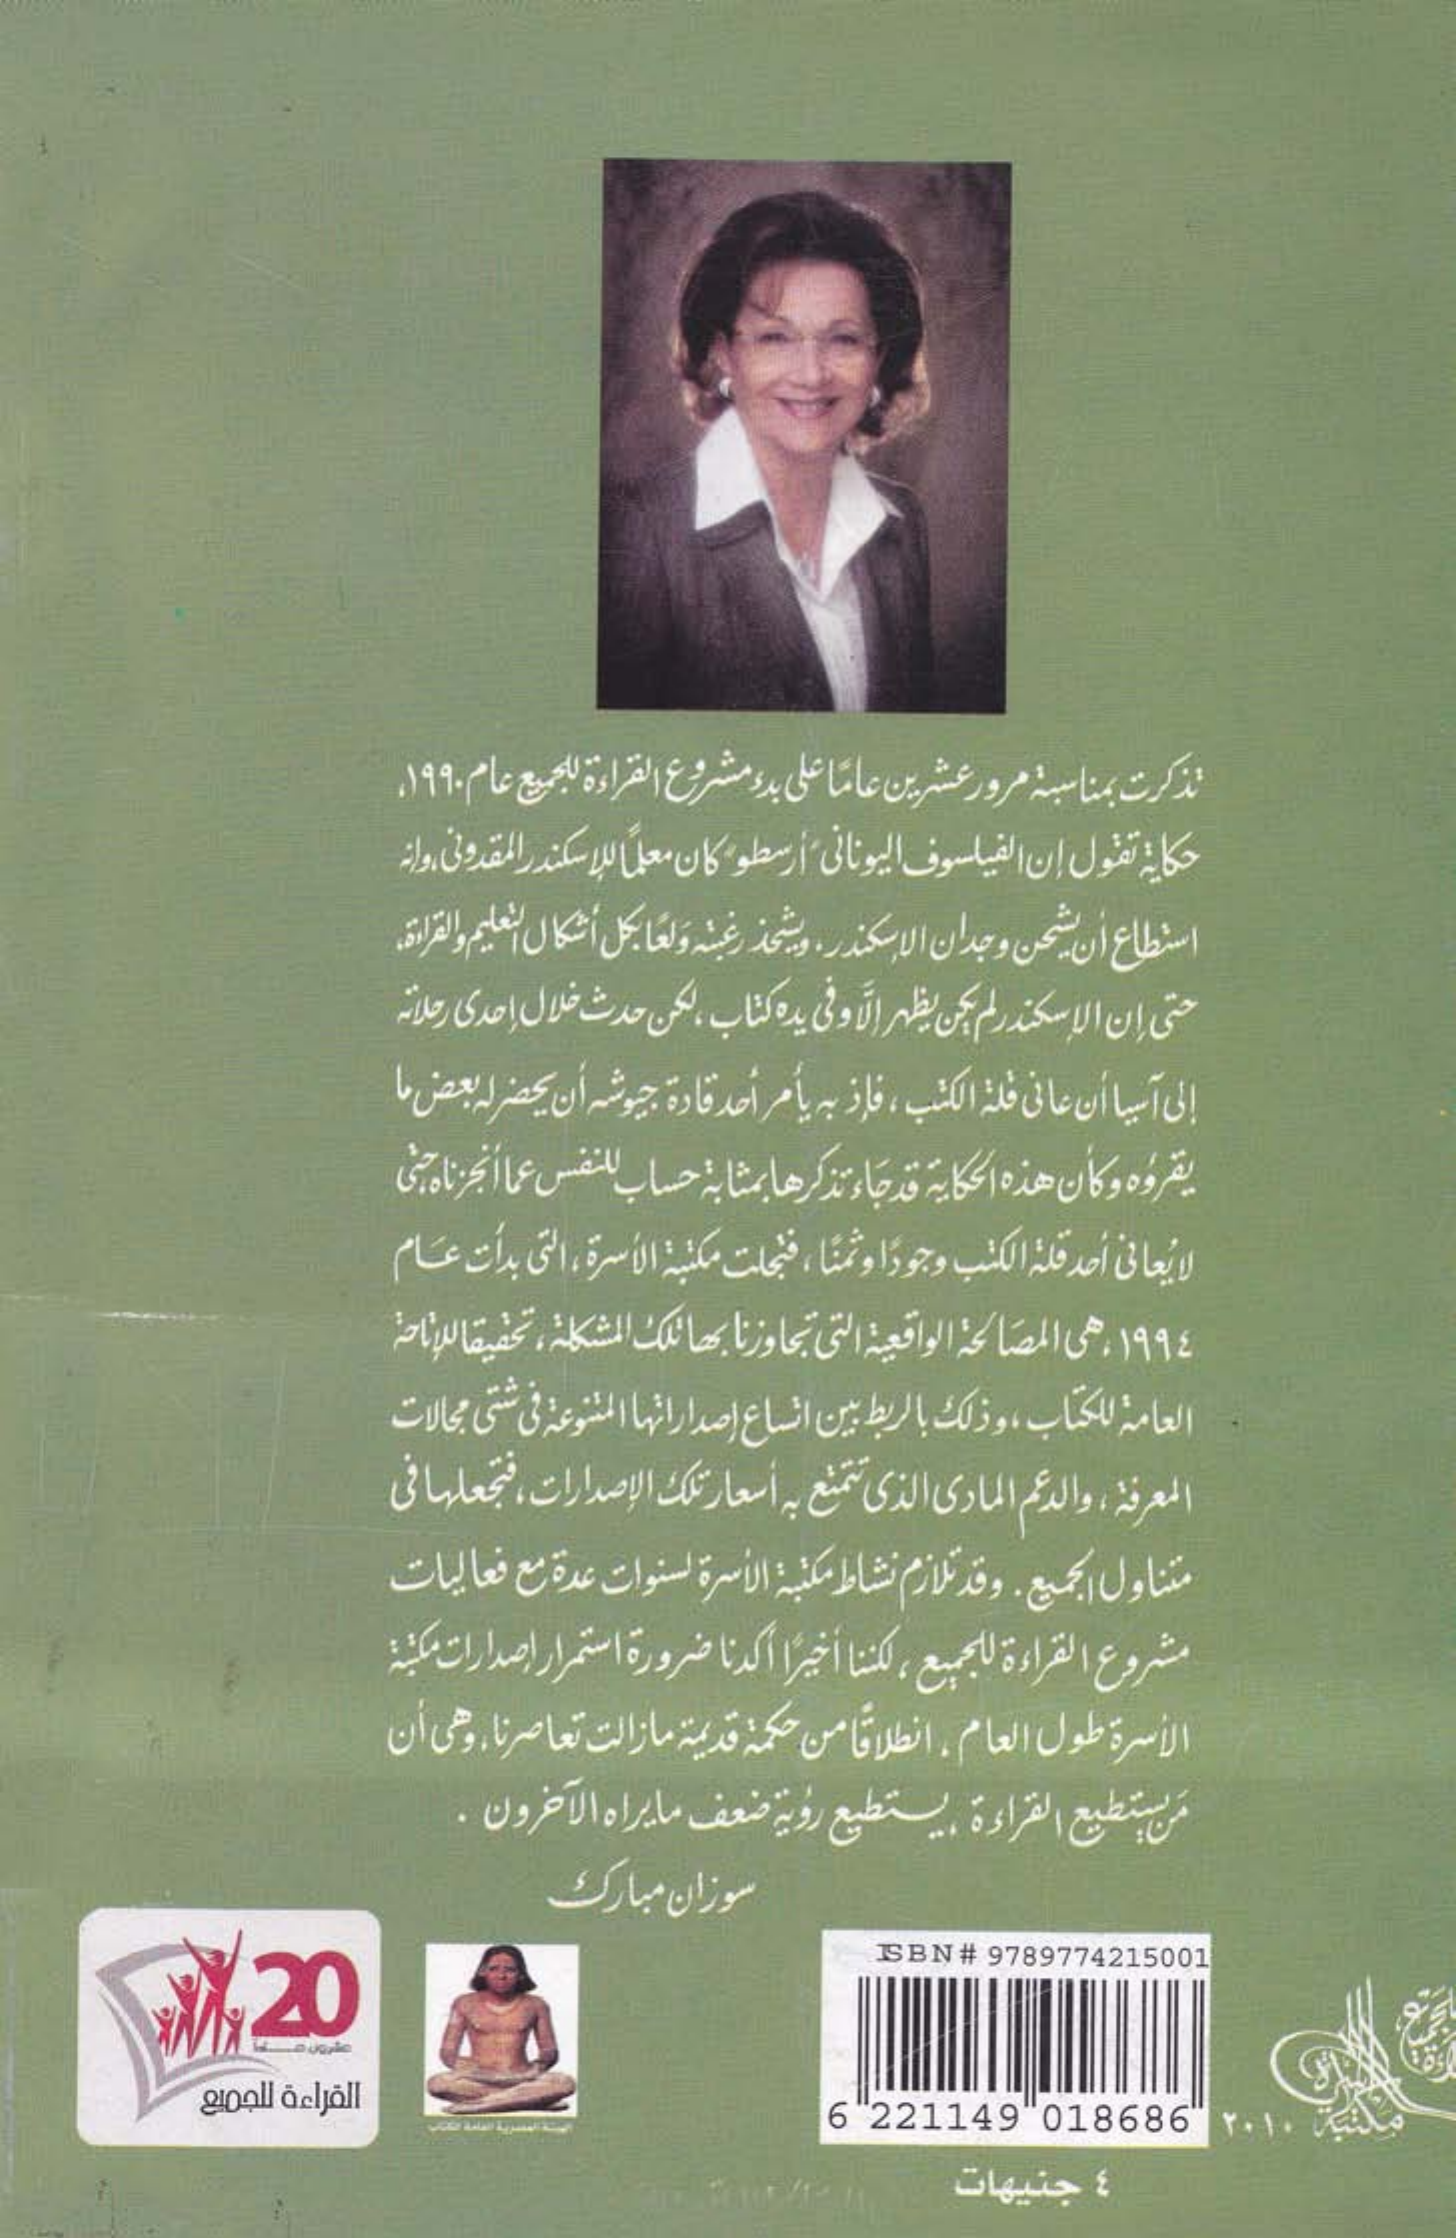 تذكرت بمناسبة مرور عشرين عامًا على بدء مشروع القراءة للجميع عام ١٩٩٠،
حكاية تقول إن الفيلسوف اليونانى "أرسطو" كان معلمًا للإسكندر المقدونى، وإنه
استطاع أن يشحن وجدان الإسكندر، ويشحذ رغبته ولعًا بكل أشكال التعليم والقراءة،
حتى إن الإسكندر لم يكن يظهر إلَّا وفى يده كتاب، لكن حدث خلال إحدى رحلاته
إلى آسيا أن عانى قلة الكتب، فإذ به يأمر أحد قادة جيوشه أن يحضر له بعض ما
يقرؤه وكأن هذه الحكاية قد جاء تذكرها بمثابة حساب للنفس عما أنجزناه، حتى
لا يُعانى أحد قلة الكتب وجودًا وثمنًا، فتجلت مكتبة الأسرة، التى بدأت عام
١٩٩٤، هى المصالحة الواقعية التى تجاوزنا بها تلك المشكلة، تحقيقا للإتاحة
العامة للكتاب، وذلك بالربط بين اتساع إصداراتها المتنوعة فى شتى مجالات
المعرفة، والدعم المادى الذى تتمتع به أسعار تلك الإصدارات، فتجعلها فى
متناول الجميع. وقد تلازم نشاط مكتبة الأسرة لسنوات عدة مع فعاليات
مشروع القراءة للجميع، لكننا أخيرًا أكدنا ضرورة استمرار إصدارات مكتبة
الأسرة طول العام، انطلاقًا من حكمة قديمة مازالت تعاصرنا، وهى أن
مَن يستطيع القراءة، يستطيع رؤية ضعف مايراه الآخرون.
سوزان مبارك
20
عشرون عـــاماً
القراءة للجميع
الهيئة المصرية العامة للكتاب
ISBN# 9789774215001
6 221149 018686
مكتبة الأسرة
٢٠١٠
٤ جنيهات